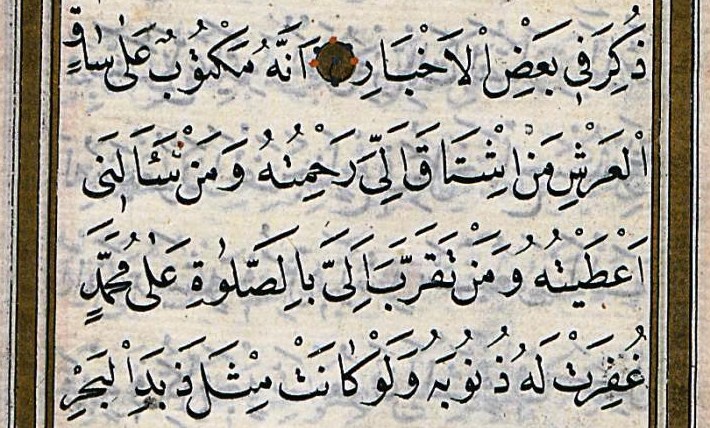 ذُكِرَ فِي بَعْضِ الْاَخْبَارِ اَنَّهُ مَكْتُوبٌ عَلٰى سَاقِ
الْعَرْشِ مَنِ اشْتَاقَ اِلَىَّ رَحِمْتُهُ وَمَنْ سَئَالَنِى
اَعْطَيْتُهُ وَمَنْ تَقَرَّبَ اِلَىَّ بِالصَّلٰوةِ عَلٰى مُحَمَّدٍ
غُفِرَتْ لَهُ ذُنُوبَهُ وَلَوْ كَانَتْ مِثْلَ ذَبَدِ الْبَحْرِ